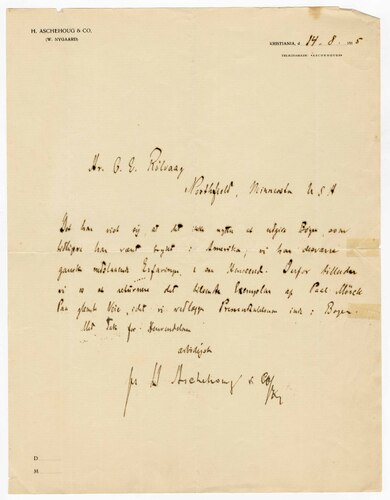 H. ASCHEHOUG & CO.
(W. NYGAARD)
KRISTIANIA, d. 14.8. 1915
TELEGRAMADR. ASCHEHOUGS
Hr. O. E. Rölvaag
Northfield, Minnesota U.S.A
Det har vist sig at det ikke nytter at utgive Bøger, som
tidligere har vært trykt i Amerika, vi har desværre
ganske nedslaaende Erfaringer i saa Henseende. Derfor tillader
vi os at returnere det tilsendte Exemplar af Paal Mörck
Paa glemte Veie, idet vi vedlægger Presseudtalelserne inde i Bogen.
Med Tak for Henvendelsen
ærbødigst
pr H Aschehoug & Co
D
M